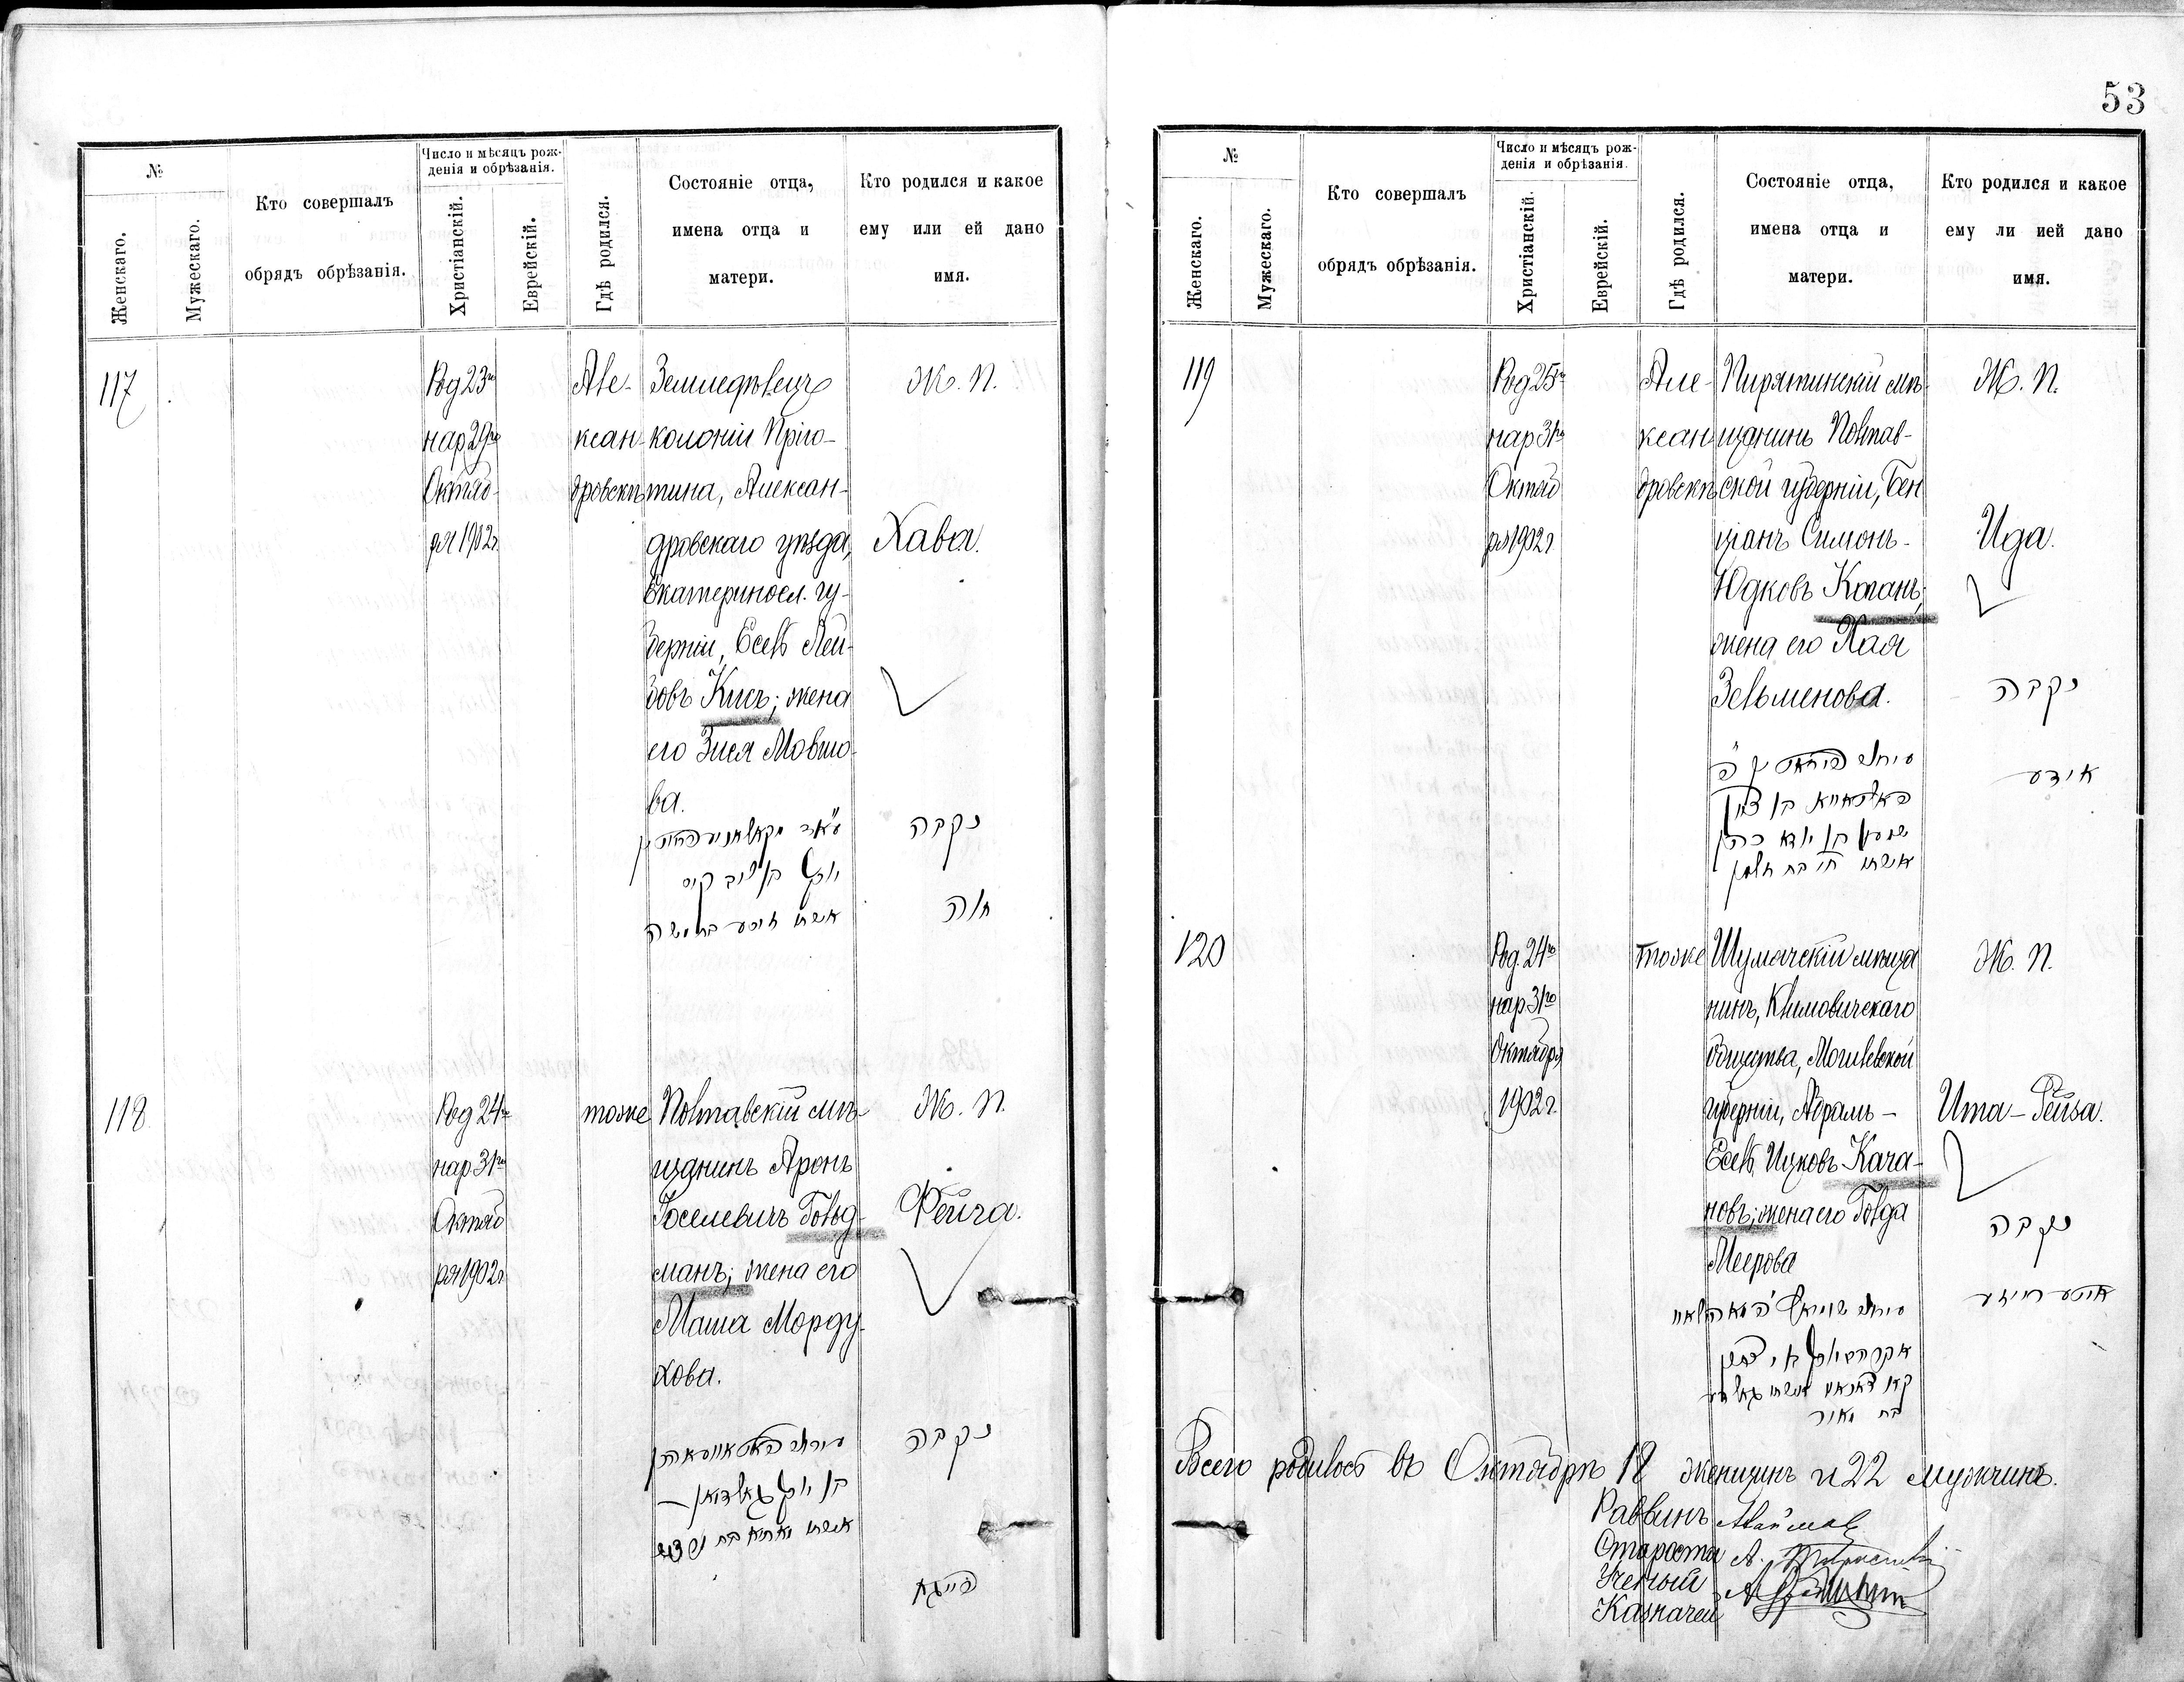 53
№
Женскаго.
Мужескаго.
Кто совершалъ
обрядъ обрѣзанія.
Число и мѣсяцъ рож-
денія и обрѣзанія.
Христіанскій.
Еврейскій.
Гдѣ родился.
Состояніе отца,
имена отца и
матери.
Кто родился и какое
ему или ей дано
имя.
117
Род 23го
нар 29го
Октяб-
ря 1902г.
Але-
ксан-
дровскъ
Земледѣлецъ
колоніи Пріго-
тина, Алексан-
дровскаго уѣзда,
Екатериносл. гу-
берніи, Есель Лей-
бовъ Кисъ; жена
его Зися Мовшо-
ва.
Ж. П.
Хава.
נקבה
חוה
118
Род 24го
нар 31го
Октяб
ря 1902г
тоже
Полтавскій мѣ-
щанинъ Аронъ
Іоселевичъ Гольд-
манъ; жена его
Маша Морду-
хова.
בן יוסף גאלדמאן
Ж. П.
Фейга.
נקבה
פייגא
№
Женскаго.
Мужескаго.
Кто совершалъ
обрядъ обрѣзанія.
Число и мѣсяцъ рож-
денія и обрѣзанія.
Христіанскій.
Еврейскій.
Гдѣ родился.
Состояніе отца,
имена отца и
матери.
Кто родился и какое
ему ли ией дано
имя.
119
Род 25го
нар 31го
Октяб
ря 1902г
Але-
ксан
дровскъ
Пирятинскій мѣ-
щанинъ Полтав-
ской губерніи, Бен
ціанъ Симонъ-
Юдковъ Коганъ;
жена его Хая
Зельменова.
שמעון בן יודא כהן
אשתו חי בת זלמן
Ж. П.
Ида.
נקבה
אידע
120
Род. 24го
нар 31го
Октября
1902г.
тоже
Шумячскій мѣща
нинъ, Климовичскаго
общества, Могилевской
губерніи, Абрамъ-
Есель Ицковъ Кача-
новъ; жена его Голда
Меерова
בת מאיר
Ж. П.
Ита-Рейза.
נקבה
איטע רייזע
Всего родилось въ Октябрѣ 18 женщинъ и 22 мужчинъ.
Раввинъ
Староста
Ученый
Казначей